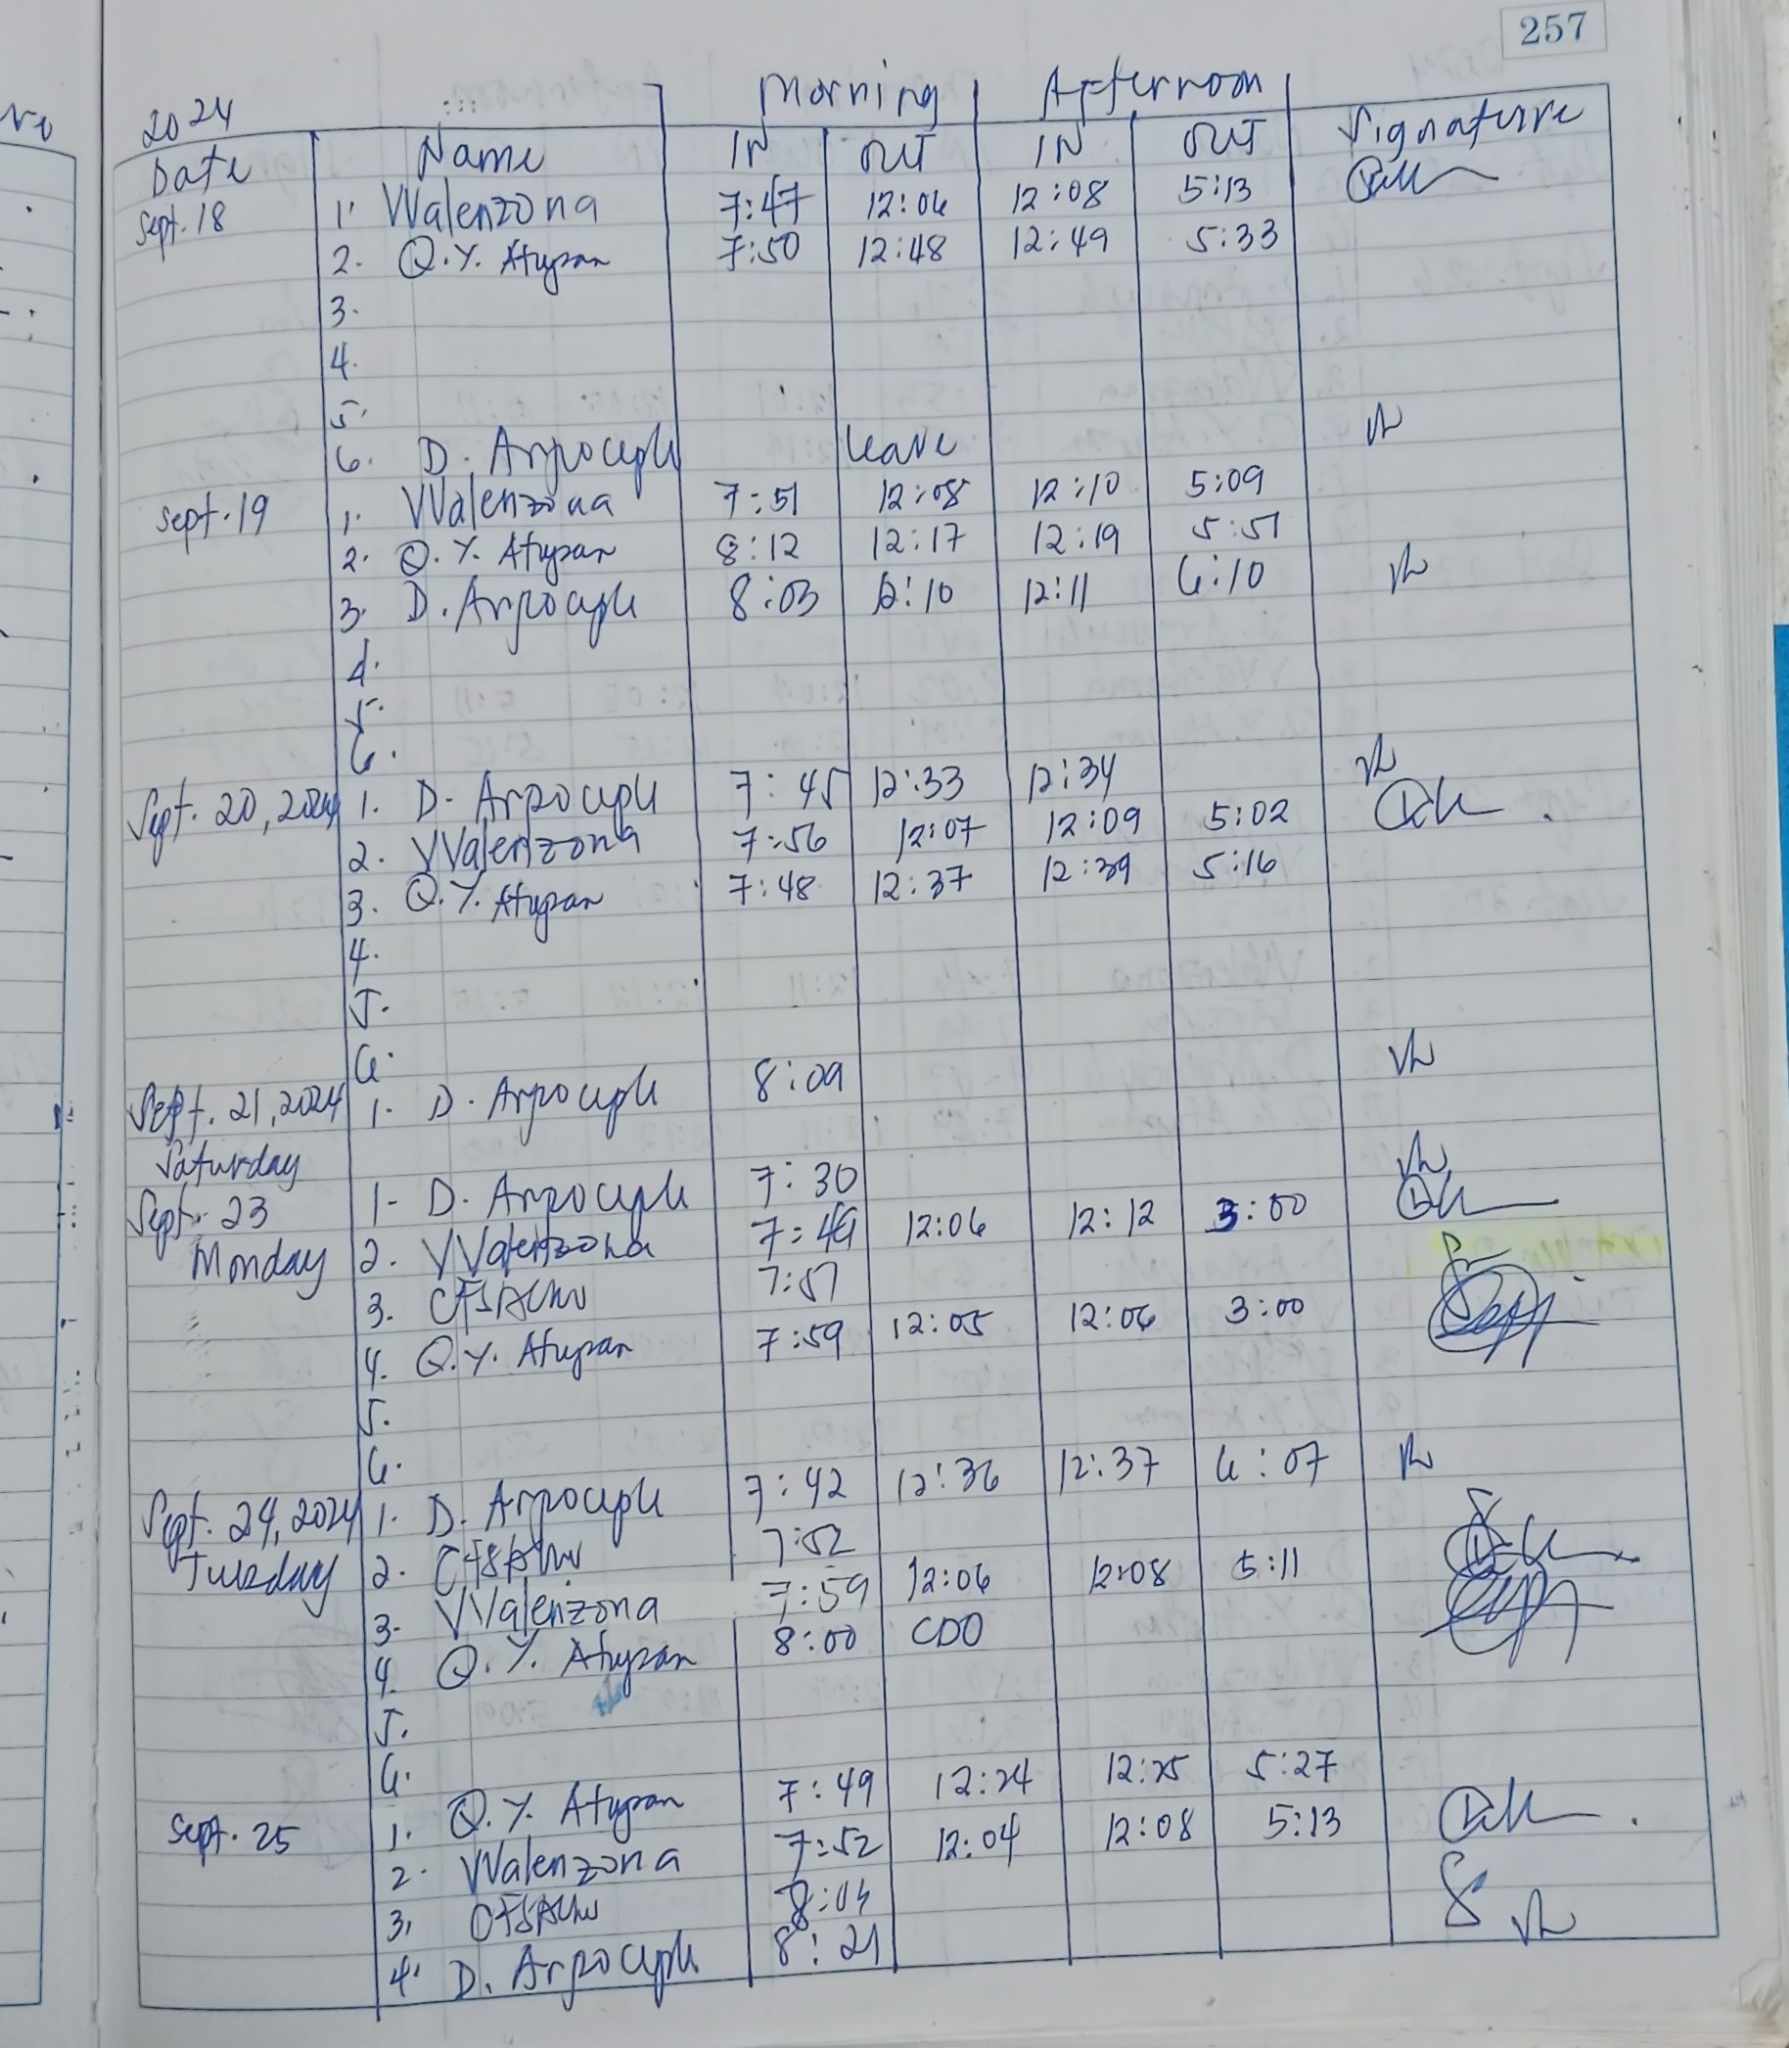 257
Morning Afternoon
2024
Date Name IN OUT IN OUT Signature
Sept. 18 1. VValenzona 7:47 12:06 12:08 5:13
2. Q.Y. Atupan 7:50 12:48 12:49 5:33
3.
4.
5.
6. D. Arpoceple leave
Sept. 19 1. VValenzona 7:51 12:08 12:10 5:09
2. Q.Y. Atupan 8:12 12:17 12:19 5:51
3. D. Arpoceple 8:03 12:10 12:11 6:10
4.
5.
6.
Sept. 20, 2024 1. D. Arpoceple 7:45 12:33 12:34
2. VValenzona 7:56 12:07 12:09 5:02
3. Q.Y. Atupan 7:48 12:37 12:39 5:16
4.
5.
6.
Sept. 21, 2024 1. D. Arpoceple 8:09
Saturday
Sept. 23 1- D. Arpoceple 7:30
Monday 2. VValenzona 7:49 12:06 12:12 3:00
3. 7:57
4. Q.Y. Atupan 7:59 12:05 12:06 3:00
5.
6.
Sept. 24, 2024 1. D. Arpoceple 7:42 12:36 12:37 6:07
Tuesday 2. 7:52
3. VValenzona 7:59 12:06 12:08 5:11
4. Q.Y. Atupan 8:00 CDO
5.
6.
Sept. 25 1. Q.Y. Atupan 7:49 12:24 12:25 5:27
2. VValenzona 7:52 12:04 12:08 5:13
3. 8:04
4. D. Arpoceple 8:21